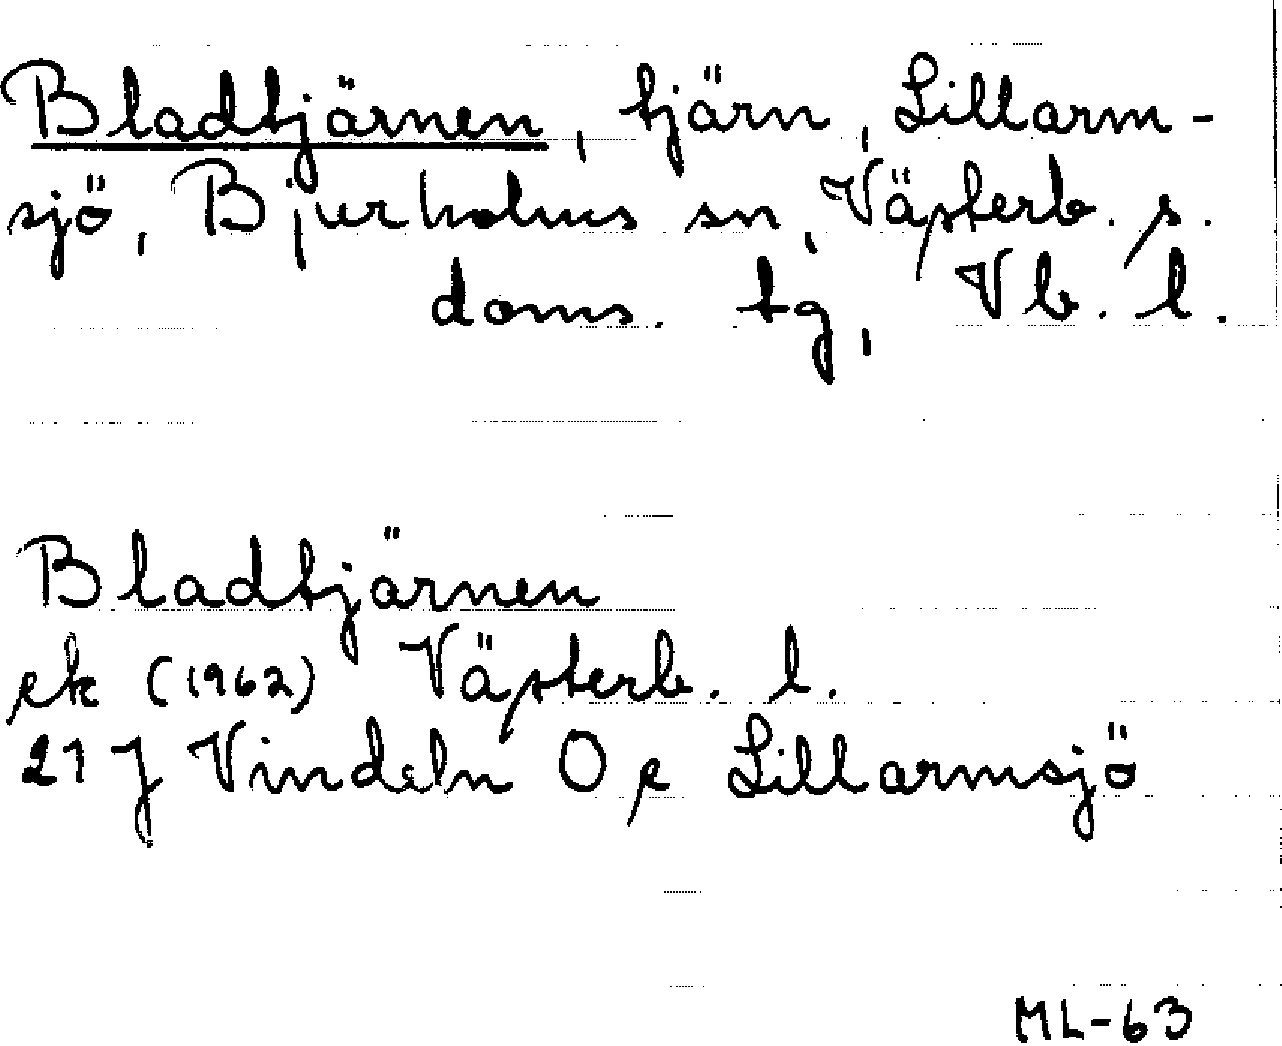 Bladtjärnen, tjärn, Lillarm-
sjö, Bjurholms sn, Västerb. s.
doms. tg, Vb. l.
Bladtjärnen
ek (1962) Västerb. l.
21 J Vindeln O e Lillarmsjö
ML-63